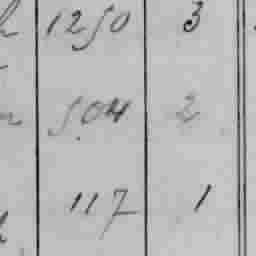 1250 3
504 2
117 1